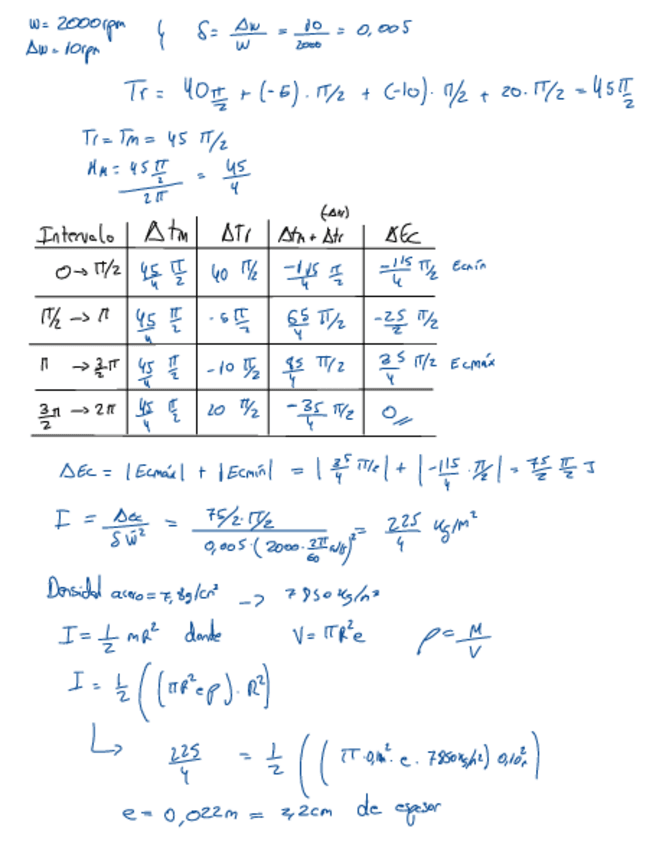 w = 2000rpm
Δw = 10rpm
δ = Δw/w = 10/2000 = 0,005
Tr = 40 π/2 + (-5) · π/2 + (-10) · π/2 + 20 · π/2 = 45 π/2
Tr = Tm = 45 π/2
Mm = (45 π/2)/(2π) = 45/4
(Δw)
Intervalo | Δtm | ΔTr | Δtm + Δtr | ΔEc
0 → π/2 | 45/4 π/2 | 40 π/2 | -115/4 π/2 | -115/4 π/2 Ecmín
π/2 → π | 45/4 π/2 | -5 π/2 | 65/4 π/2 | -25/2 π/2
π → 3/2 π | 45/4 π/2 | -10 π/2 | 85/4 π/2 | 35/4 π/2 Ecmáx
3π/2 → 2π | 45/4 π/2 | 20 π/2 | -35/4 π/2 | 0
ΔEc = |Ecmáx| + |Ecmín| = |35/4 π/2| + |-115/4 · π/2| = 75/2 π/2 J
I = Δec/(δ w̄²) = (75/2 · π/2)/(0,005 · (2000 · 2π/60)²) = 225/4 kg/m²
Densidad acero = 7,8g/cm³ → 7850 kg/m³
I = 1/2 mR² donde V = πR²e ρ = M/V
I = 1/2 ((πR²eρ) · R²)
225/4 = 1/2 ((π · 0,1m² · e · 7850kg/m²) 0,10²m)
e = 0,022m = 2,2cm de espesor